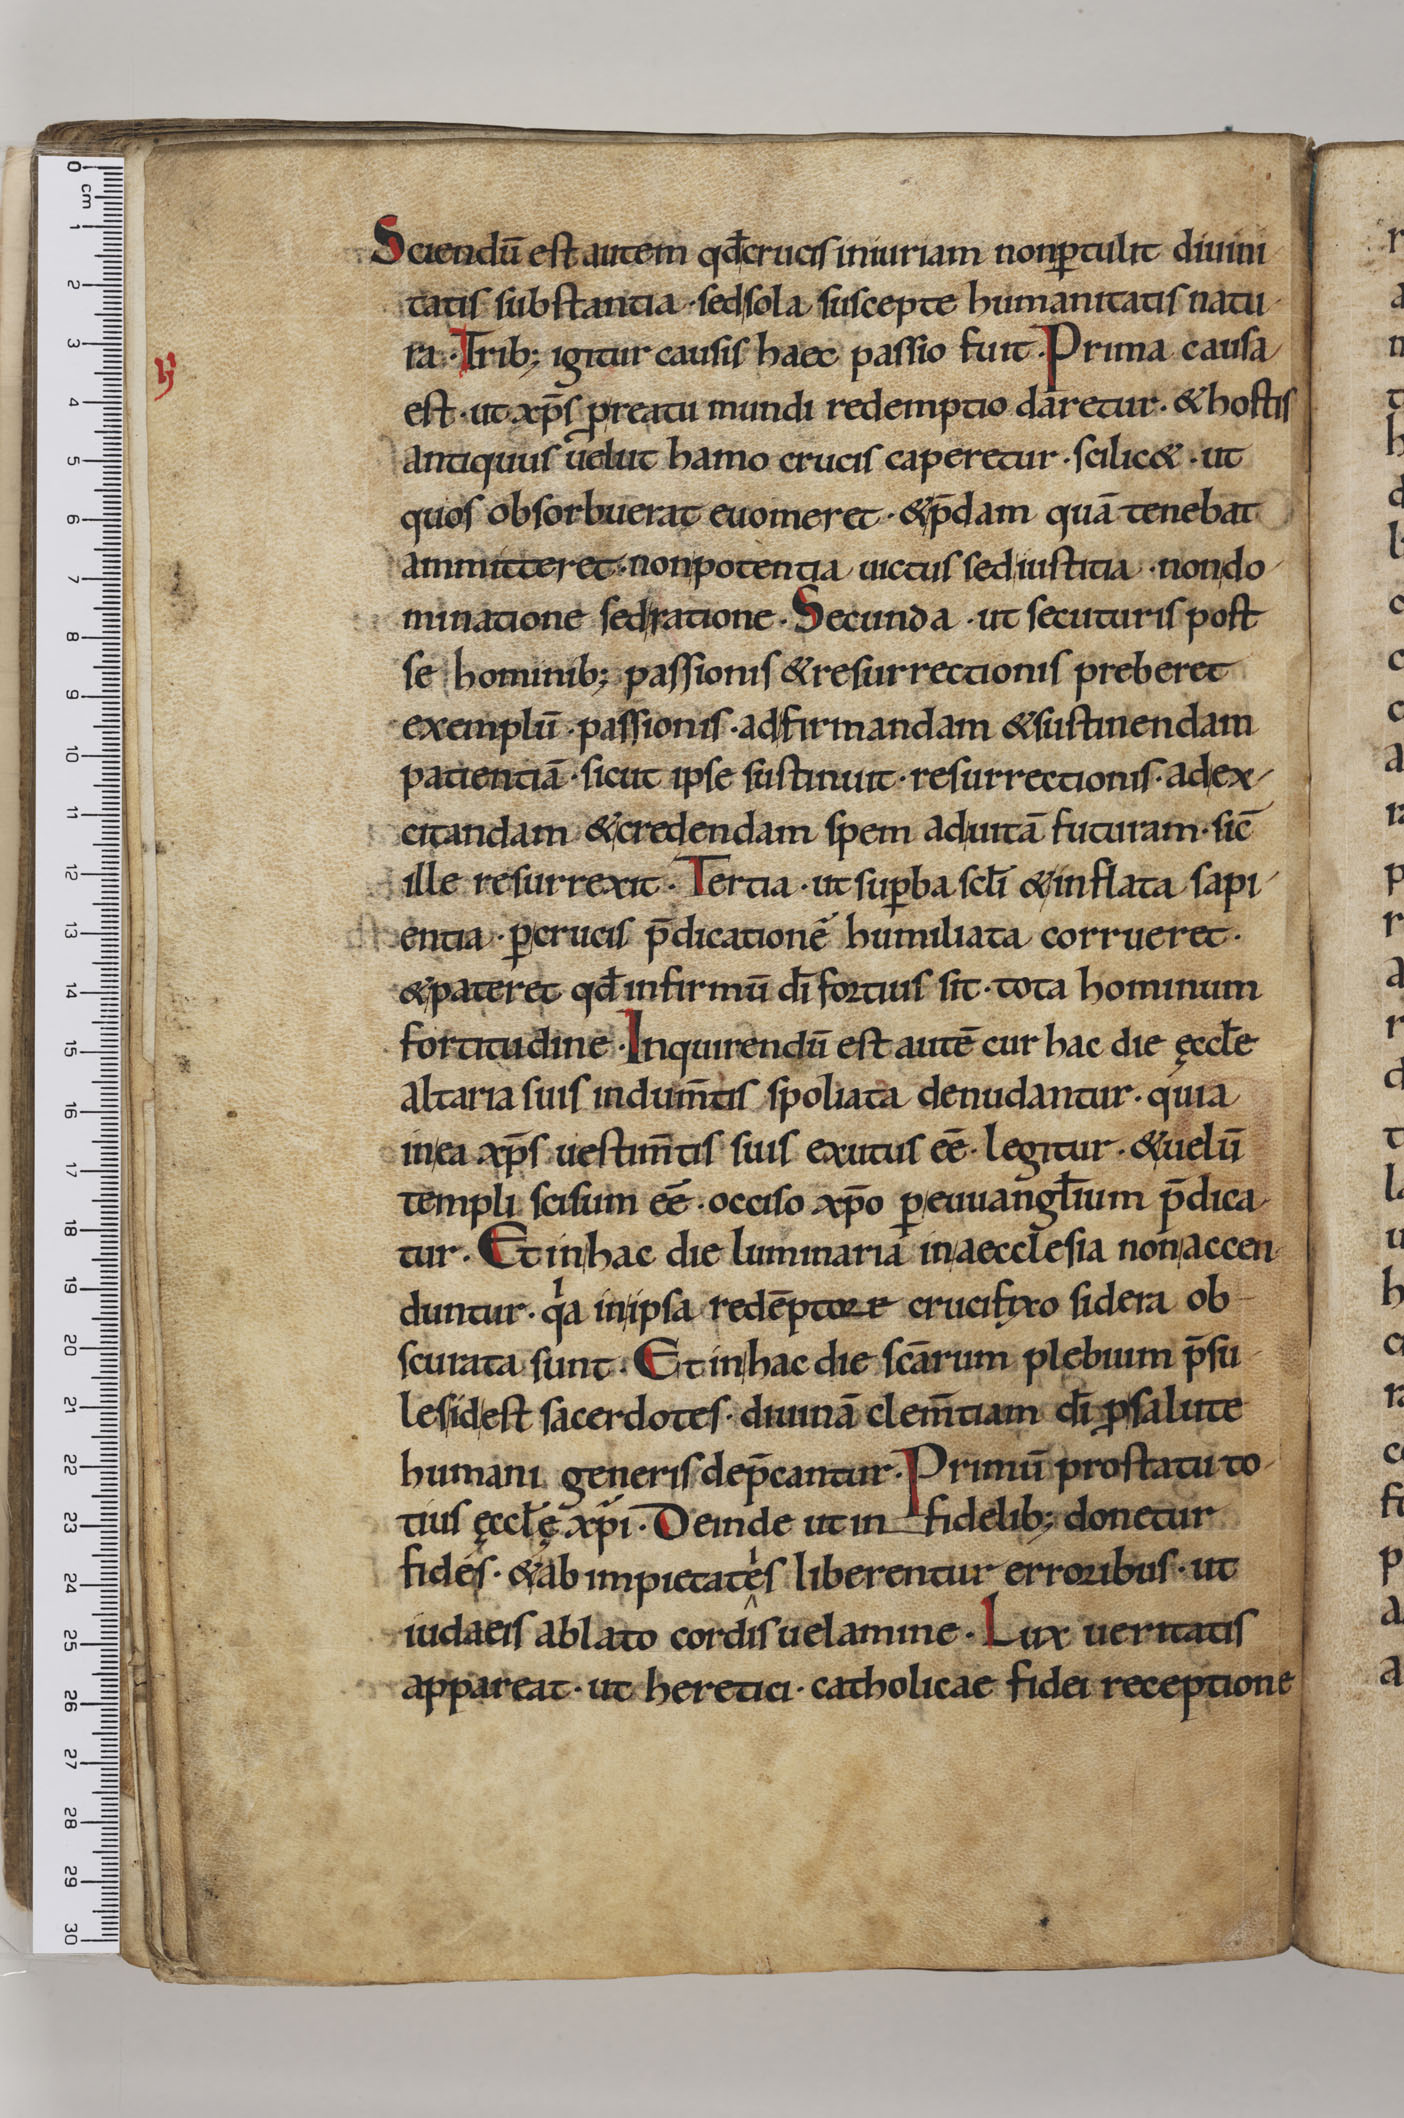 Sciendū est autem qđ crucis iniuriam non ꝑtulit diuini
tatis substantia · sed sola suscepte humanitatis natu-
ra · Trib; igitur causis haec passio fuit · Prima causa
est · ut xp̄s p reatu mundi redemptio daretur · & hostis
antiquus uelut hamo crucis caperetur · scilic& · ut
quos obsorbuerat euomeret · & p̄dam quā tenebat
ammitteret · non potentia uictus sed iustitia · non do
minatione sed ratione · Secunda · ut secuturis post
se hominib; passionis & resurrectionis preberet
exemplū · passionis · ad firmandam & sustinendam
patientiā · sicut ipse sustinuit · resurrectionis · ad ex-
citandam & credendam spem ad uitā futuram · sic̄
ille resurrexit · Tertia · ut suꝑba scl̄i & inflata sapi-
entia · ꝑ crucis p̄dicationē humiliata corrueret ·
& pateret qđ infirmū dī fortius sit · tota hominum
fortitudine · Inquirendū est autē cur hac die ęccl̄e
altaria suis indum̄tis spoliata denudantur · quia
in ea xp̄s uestim̄tis suis exutus eē · legitur · & uelū
templi scisum eē · occiso xp̄o ꝑ euuangl̄ium p̄dica-
tur · Et in hac die luminaria in aecclesia non accen-
duntur · qa in ipsa redēptore crucifixo sidera ob-
scurata sunt · Et in hac die scārum plebium p̄su-
les idest sacerdotes · diuinā clem̄tiam dī ꝓ salute
humani generis dep̄cantur · Primū pro statu to-
tius ęccl̄ę xp̄i · Deinde ut in fidelib; donetur
fides · & ab impietates liberentur erroribus · ut
iudaeis ablato cordis uelamine · Lux ueritatis
appareat · ut heretici · catholicae fidei receptione
0 cm
1
2
3
4
5
6
7
8
9
10
11
12
13
14
15
16
17
18
19
20
21
22
23
24
25
26
27
28
29
30